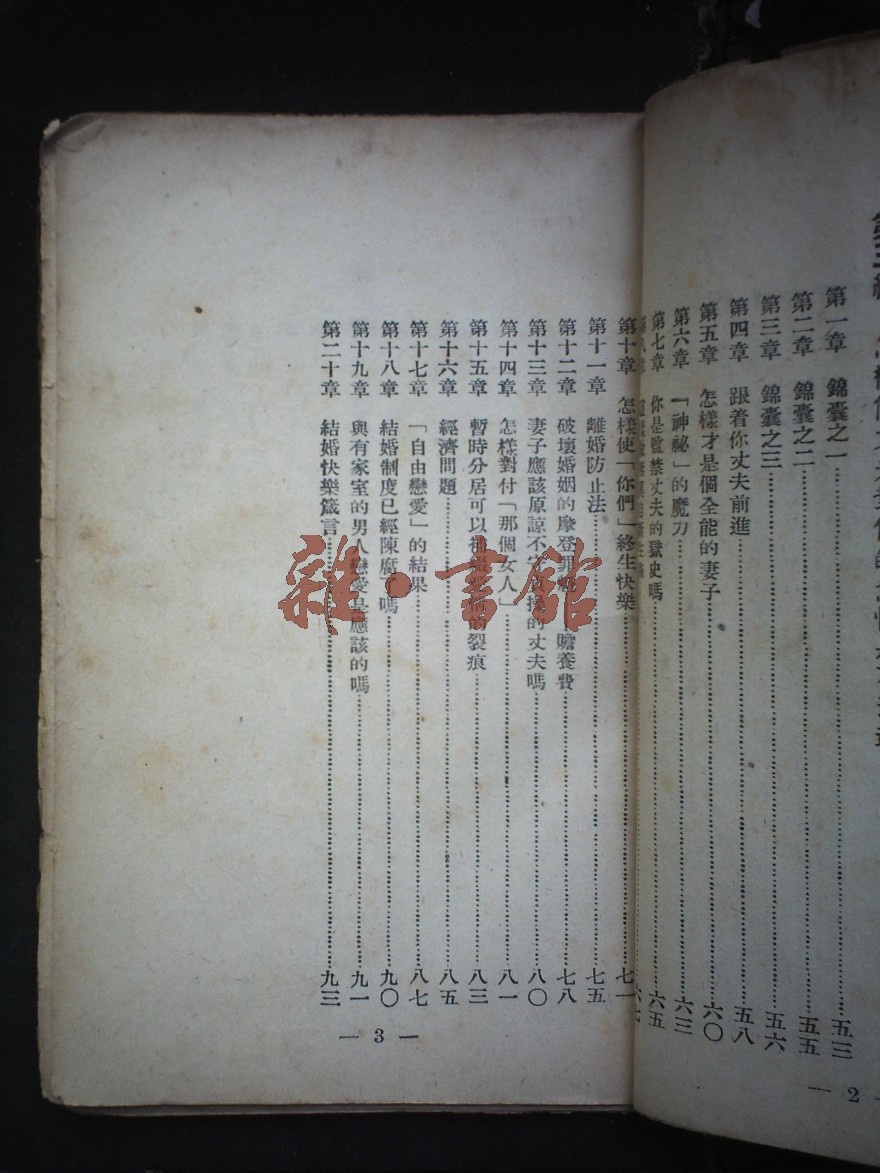 第一章 錦囊之一 五三
第二章 錦囊之二 五五
第三章 錦囊之三 五六
第四章 跟着你丈夫前進 五八
第五章 怎樣才是個全能的妻子 六〇
第六章 「神祕」的魔力 六三
第七章 你是監禁丈夫的獄吏嗎 六五
— 2 —
第十章 怎樣使「你們」終生快樂 七一
第十一章 離婚防止法 七五
第十二章 破壞婚姻的摩登罪 贍養費 七八
第十三章 妻子應該原諒不守貞操的丈夫嗎 八〇
第十四章 怎樣對付「那個女人」 八一
第十五章 暫時分居可以補 的裂痕 八三
第十六章 經濟問題 八五
第十七章 「自由戀愛」的結果 八七
第十八章 結婚制度已經陳腐了嗎 九〇
第十九章 與有家室的男人戀愛是應該的嗎 九一
第二十章 結婚快樂箴言 九三
— 3 —
雜·書館